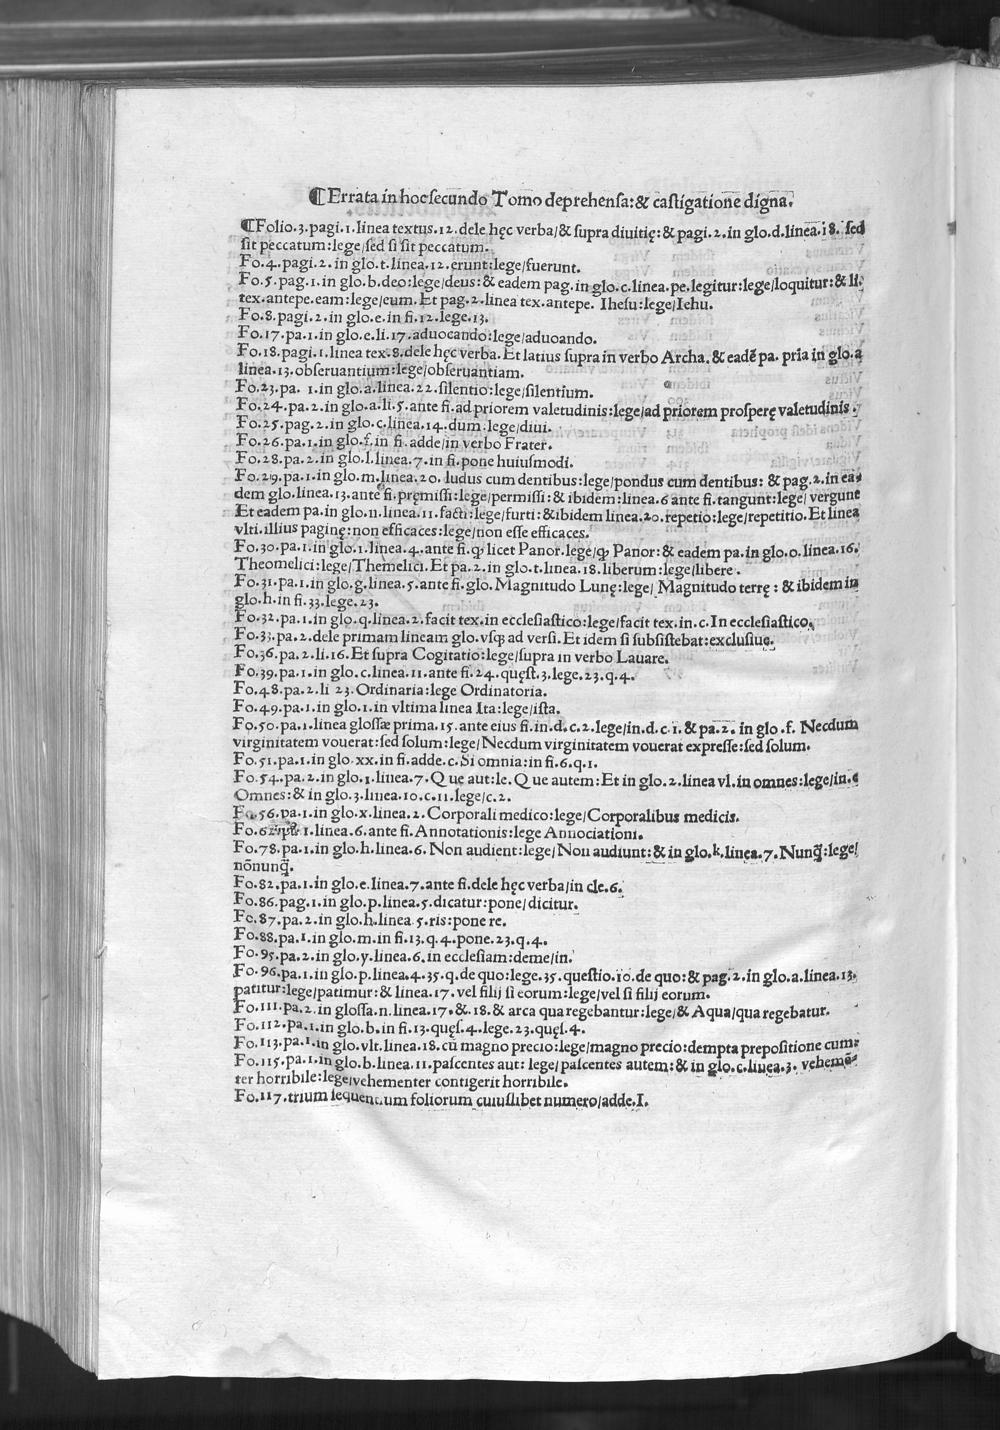 ¶Errata in hoc secundo Tomo deprehensa:& castigatione digna.
¶Folio.3.pagi.1.linea textus.12.dele hęc verba/& supra diuitię:& pagi.2.in glo.d.linea.18. sed
sit peccatum:lege/sed si sit peccatum.
Fo.4.pagi.2.in glo.t.linea.12.erunt:lege/fuerunt.
Fo.5.pag.1.in glo.b.deo:lege/deus:& eadem pag.in glo.c.linea.pe.legitur:lege/loquitur:& li.
tex.antepe.eam:lege/eum.Et pag.2.linea tex.antepe. Ihesu:lege/Iehu.
Fo.8.pagi.2.in glo.e.in fi.12.lege.13.
Fo.17.pa.1.in glo.e.li.17.aduocando:lege/aduoando.
Fo.18.pagi.1.linea tex.8.dele hęc verba.Et latius supra in verbo Archa.& eadē pa. pria in glo.a
linea.13.obseruantium:lege/obseruantiam.
Fo.23.pa. 1.in glo.a.linea.22.silentio:lege/silentium.
Fo.24.pa.2.in glo.a.li.5.ante fi.ad priorem valetudinis:lege/ad priorem prosperę valetudinis.
Fo.25.pag.2.in glo.c.linea.14.dum:lege/diui.
Fo.26.pa.1.in glo.f.in fi.adde/in verbo Frater.
Fo.28.pa.2.in glo.l.linea.7.in fi.pone huiusmodi.
Fo.29.pa.1.in glo.m.linea.20. ludus cum dentibus:lege/pondus cum dentibus: & pag.2.in ea
dem glo.linea.13.ante fi.pręmissi:lege/permissi:& ibidem:linea.6 ante fi.tangunt:lege/ vergunt
Et eadem pa.in glo.n.linea.11.facti:lege/furti:&ibidem linea.20.repetio:lege/repetitio.Et linea
vlti.illius paginę:non efficaces:lege/non esse efficaces.
Fo.30.pa.1.in glo.1.linea.4.ante fi.ꝙ licet Panor.lege/ꝙ Panor:& eadem pa.in glo.o.linea.16.
Theomelici:lege/Themelici.Et pa.2.in glo.t.linea.18.liberum:lege/libere.
Fo.31.pa.1.in glo.g.linea.5.ante fi.glo. Magnitudo Lunę:lege/ Magnitudo terrę : & ibidem in
glo.h.in fi.33.lege.23.
Fo.32.pa.1.in glo.q.linea.2.facit tex.in ecclesiastico:lege/facit tex.in.c.In ecclesiastico.
Fo.33.pa.2.dele primam lineam glo.vsqꝫ ad versi.Et idem si subsistebat:exclusiue.
Fo.36.pa.2.li.16.Et supra Cogitatio:lege/supra in verbo Lauare.
Fo.39.pa.1.in glo.c.linea.11.ante fi.24.quęst.3.lege.23.q.4.
Fo.48.pa.2.li 23.Ordinaria:lege Ordinatoria.
Fo.49.pa.1.in glo.1.in vltima linea Ita:lege/ista.
Fo.50.pa.1.linea glossæ prima.15.ante eius fi.in.d.c.2.lege/in.d.c.1.& pa.2. in glo.f. Necdum
virginitatem vouerat:sed solum:lege/Necdum virginitatem vouerat expresse:sed solum.
Fo.51.pa.1.in glo.xx.in fi.adde.c.Si omnia:in fi.6.q.1.
Fo.54.pa.2.in glo.1.linea.7.Que aut:le.Que autem:Et in glo.2.linea vl.in omnes:lege/in.c
Omnes:& in glo.3.linea.10.c.11.lege/c.2.
Fo.56.pa.1.in glo.x.linea.2.Corporali medico:lege/Corporalibus medicis.
1.linea.6.ante fi.Annotationis:lege Annociationi.
Fo.78.pa.1.in glo.h.linea.6.Non audient:lege/Non audiunt:& in glo.k.linea.7.Nunq̄:lege/
nōnunq̄.
Fo.82.pa.1.in glo.e.linea.7.ante fi.dele hęc verba/in cle.6.
Fo.86.pag.1.in glo.p.linea.5.dicatur:pone/dicitur.
Fo.87.pa.2.in glo.h.linea.5.ris:pone re.
Fo.88.pa.1.in glo.m.in fi.13.q.4.pone.23.q.4.
Fo.95.pa.2.in glo.y.linea.6.in ecclesiam:deme/in.
Fo.96.pa.1.in glo.p.linea.4.35.q.de quo:lege.35.questio.10.de quo:& pag.2.in glo.a.linea.13.
patitur:lege/patimur:& linea.17.vel filij si eorum:lege/vel si filij eorum.
Fo.111.pa.2.in glossa.n.linea.17.&.18.& arca qua regebantur:lege/& Aqua/qua regebatur.
Fo.112.pa.1.in glo.b.in fi.13.quęs.4.lege.23.quęs.4.
Fo.113.pa.1.in glo.vlt.linea.18.cū magno precio:lege/magno precio:dempta prepositione cum:
Fo.115.pa.1.in glo.b.linea.11.pascentes aut: lege/ pascentes autem:& in glo.c.linea.3. vehemē
ter horribile:lege/vehementer contigerit horribile.
Fo.117.trium sequentium foliorum cuiuslibet numero/adde.I.